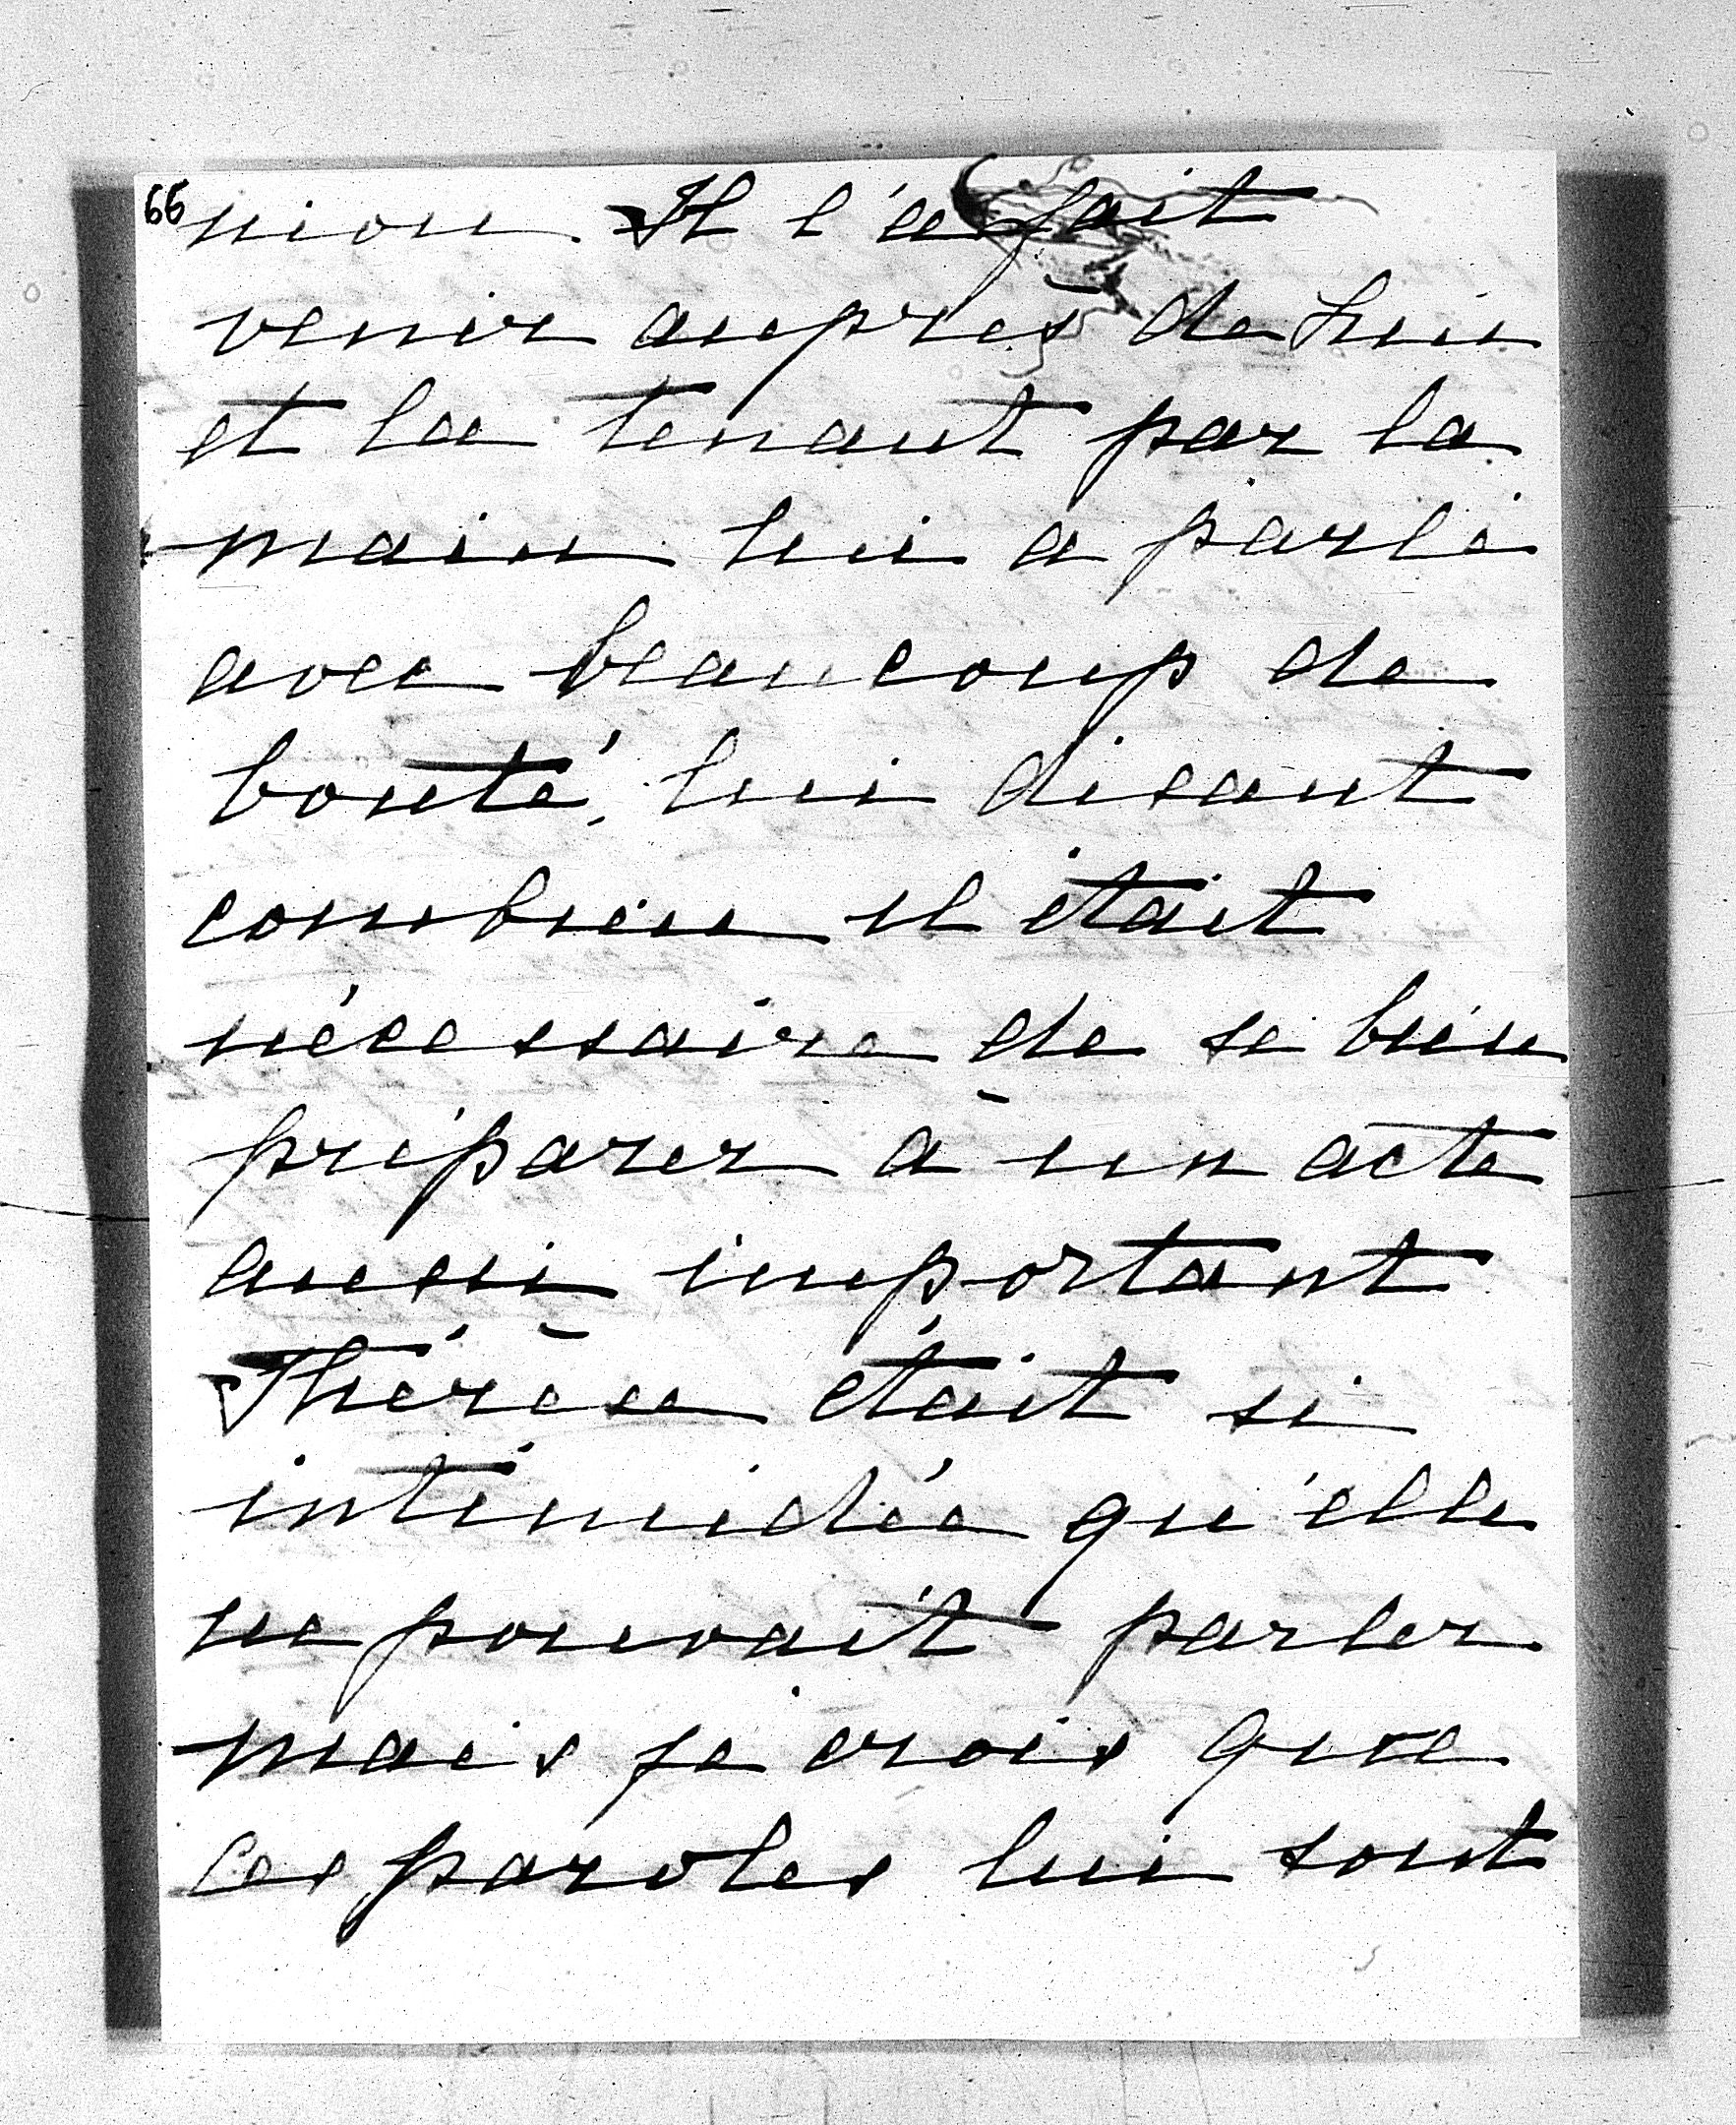 66 nion. Il l'a fait
venir auprès de Lui
et la tenant par la
main lui a parlé
avec beaucoup de
bonté, lui disant
combien il était
nécessaire de se bien
préparer à un acte
aussi important
Thérèse était si
intimidée qu'elle
ne pouvait parler
mais je crois que
ces paroles lui sont